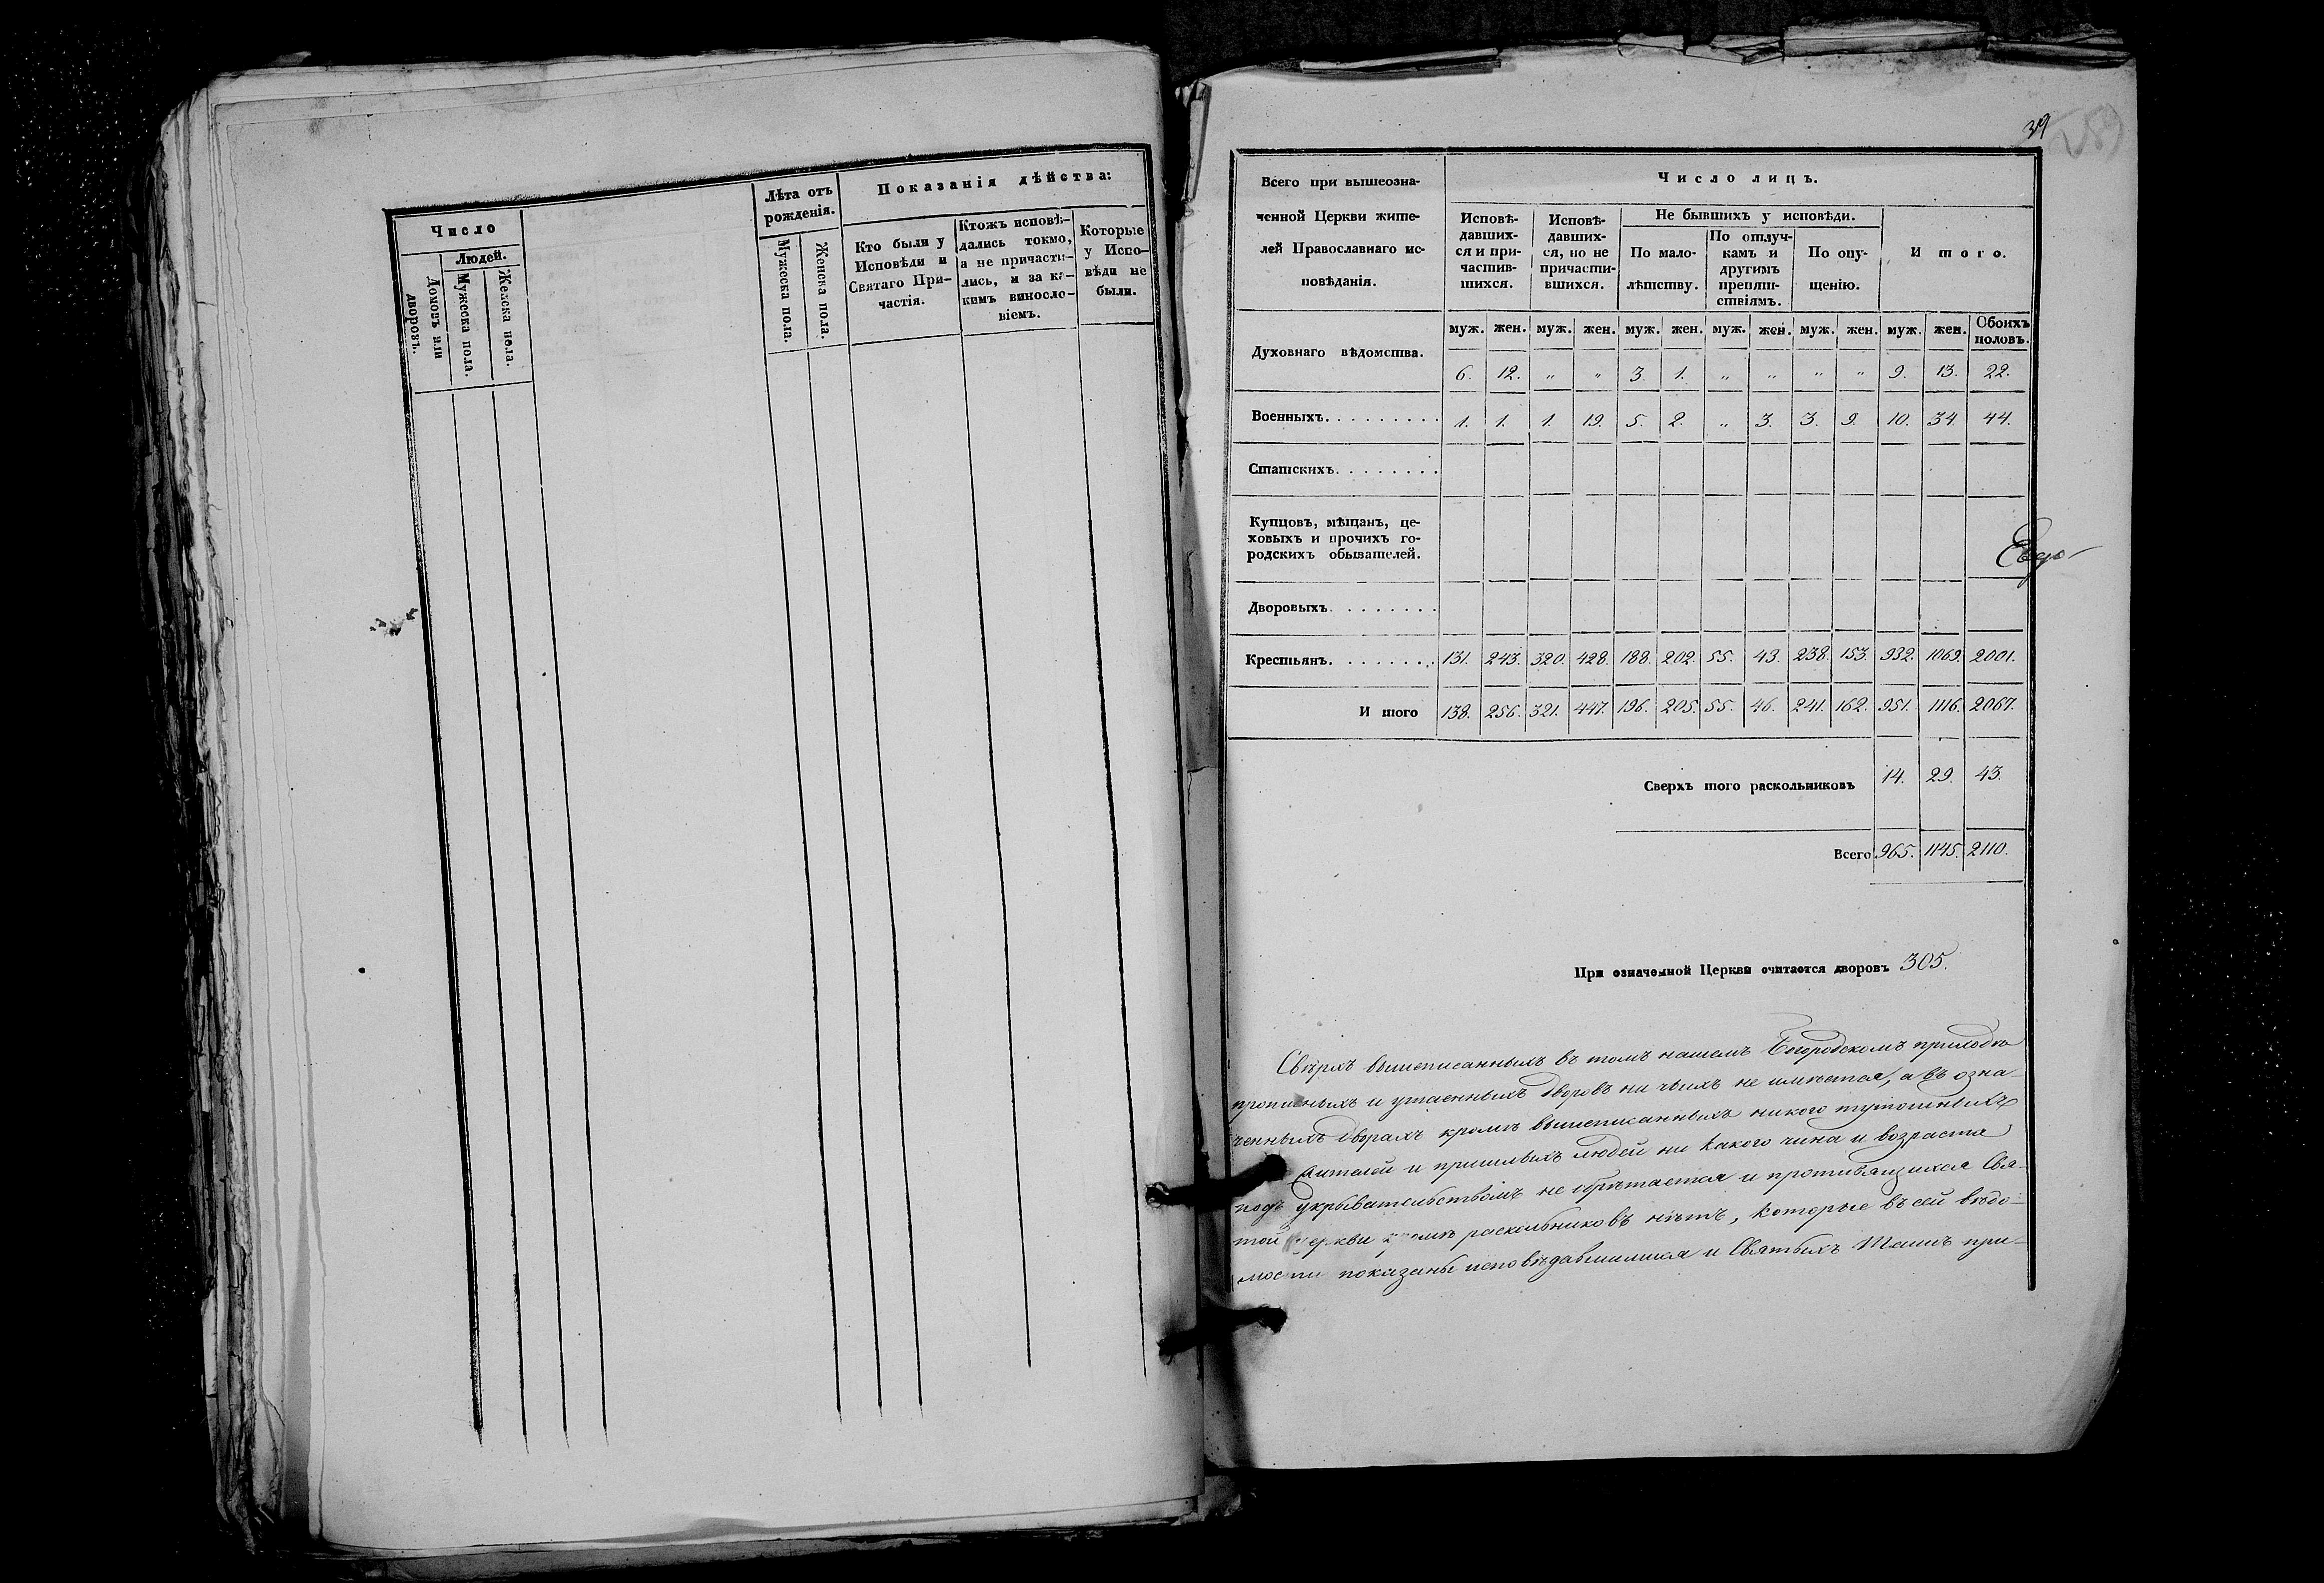 Число
Людей.
Домовъ или дворовъ.
Мужеска пола.
Женска пола.
Лѣта отъ
рожденія.
Мужеска пола.
Женска пола.
Показанія дѣйства:
Кто были у
Исповѣди и
Святаго При-
частія.
Ктожъ исповѣ-
дались токмо,
а не причасти-
лись, и за ка-
кимъ винослo-
віемъ.
Которые
у Испо-
вѣди не
были.
39
Всего при вышеозна-
ченной Церкви жите-
лей Православнаго ис-
повѣданія.
Число лицъ.
Исповѣ-
давших-
ся и при-
частив-
шихся.
Исповѣ-
давших-
ся, но не
причасти-
вшихся.
Не бывшихъ у исповѣди.
По мало-
лѣтству.
По отлуч-
камъ и
другимъ
препят-
ствіямъ.
По опу-
щенію.
И того.
муж. жен. муж. жен. муж. жен. муж. жен. муж. жен. муж. жен. Обоихъ половъ.
Духовнаго вѣдомства. 6. 12. " " 3. 1. " " " " 9. 13. 22.
Военныхъ. . . . . . . . . 1. 1. 1. 19. 5. 2. " 3. 3. 9. 10. 34. 44.
Статскихъ. . . . . . . .
Купцовъ, мѣщанъ, це-
ховыхъ и прочихъ го-
родскихъ обывателей.
Евдо-
Дворовыхъ. . . . . . . .
Крестьянъ. . . . . . . . 131. 243. 320. 428. 188. 202. 55. 43. 238. 153. 932. 1069. 2001.
И того 138. 256. 321. 447. 196. 205. 55. 46. 241. 162. 951. 1116. 2067.
Сверхъ того раскольниковъ 14. 29. 43.
Всего 965. 1145. 2110.
При означенной Церкви считается дворовъ 305.
Свѣрхъ вышеписанныхъ въ томъ нашемъ Богородскомъ приходѣ
прописныхъ и утаенныхъ дворовъ ни чьихъ не имѣется, а въ озна-
ченныхъ дворахъ кромѣ вышеписанныхъ никого тутошныхъ
жителей и пришлыхъ людей ни какого чина и возраста
подъ укрывательствомъ не обрѣтается и противящихся Свя-
той Церкви кромѣ раскольниковъ нѣтъ, которые въ сей вѣдо-
мости показаны исповѣдавшимися и Святыхъ Таинъ при-